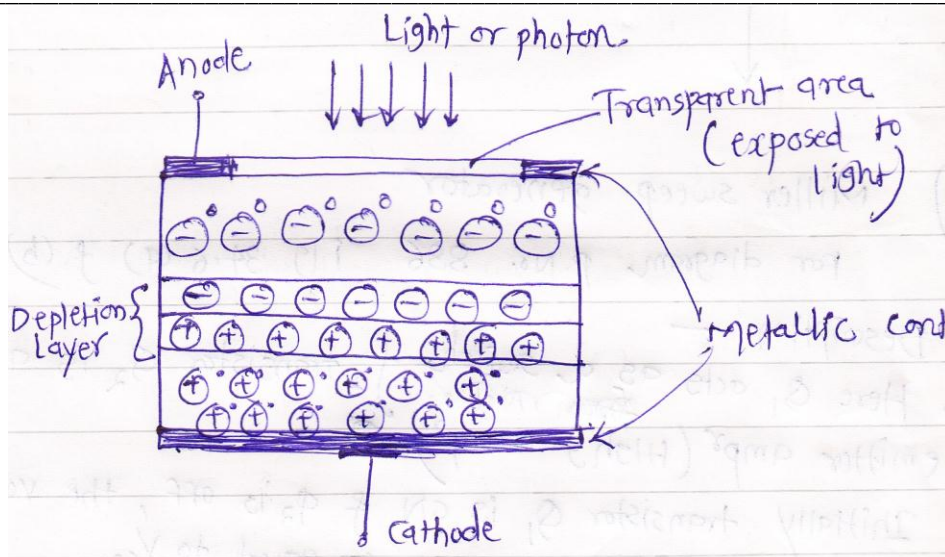 Light or photon.
Anode
Transparent area
(exposed to
light)
Depletion
Layer
Metallic cont
Cathode